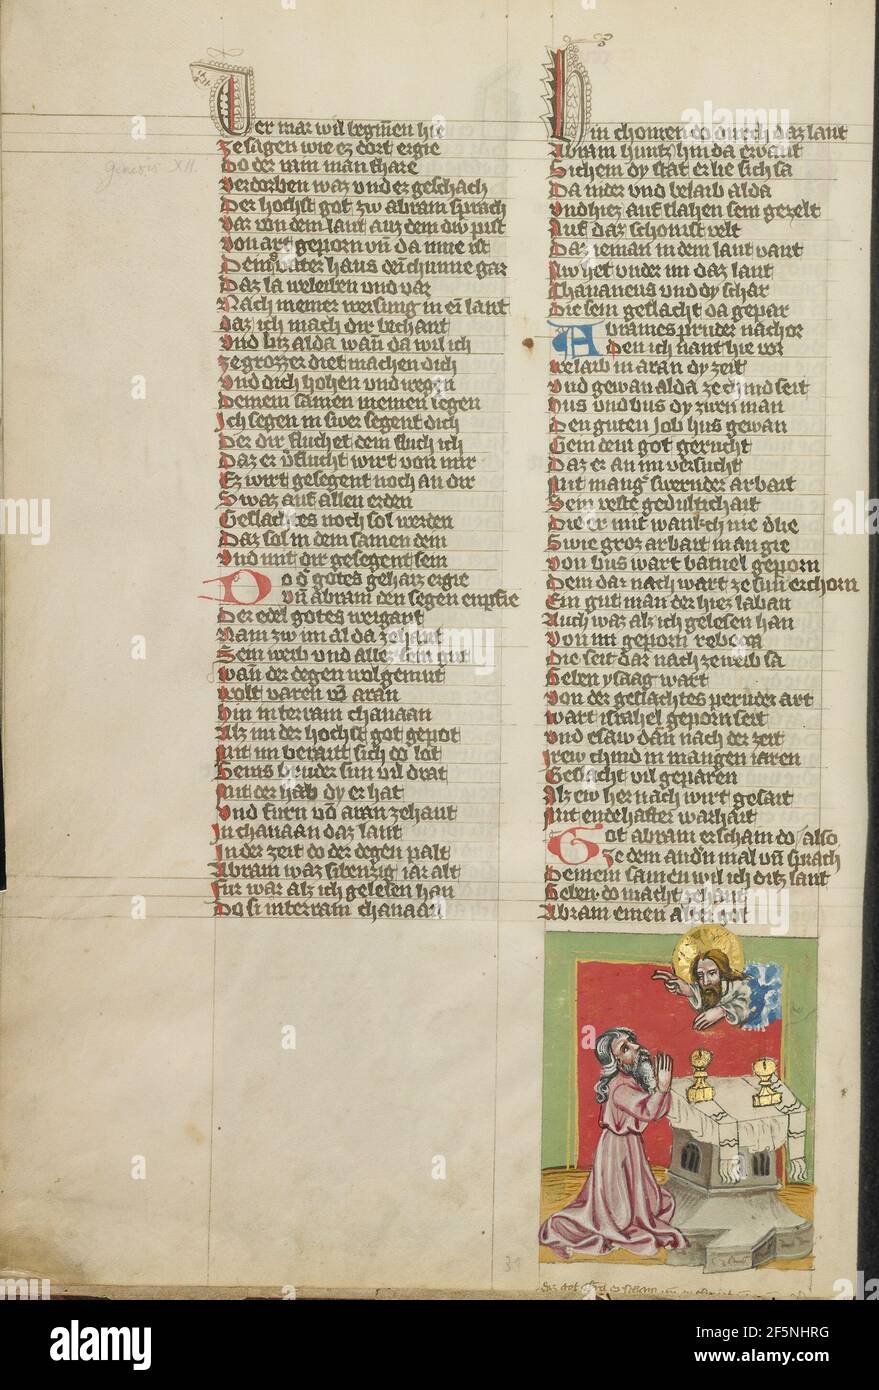 Der mar wil begiñen hie
Ze sagen wie ez dort ergie
Do der ram man share
Verdorben waz und ez geschach
Der hochst got zw abram sprach
Var von dem laut auz dem diw pist
Von art geporn vñ da inne ist
Deins vater haus dein chunne gar
Daz la beleiben und var
Nach meiner weisung in ei lant
daz ich mach dir bechant
Und biz alda wañ da wil ich
ze grozzer diet machen dich
Und dich hohen und wegen
Deinem samen meinen segen
Ich segen in swer segent dich
Der dir fluchet dem fluch ich
Daz er v̄flucht wirt von mir
Ez wirt gesegent noch an dir
Swaz auf allen erden
Geslachtes noch sol werden
Daz sol in dem samen dein
Und mit dir gesegent sein
Do d' gotes gehaiz ergie
vñ abram den segen enpfie
Der edel gotes weigant
Nam zw im al da zehant
Sein weib und allez sein gut
wañ der degen wolgemut
wolt varen vō aran
hin in terram chanaan
Alz im der hochst got gepot
Mit im berait sich do lot
Seins bruder sun vil drat
Mit der hab dy er hat
Und furn vō aran zehant
In chanaan daz lant
In der zeit do der degen palt
Abram waz sibenzig iar alt
fur war alz ich gelesen han
Do si in terram chanaan
Hin chomen do durch daz lant
Abram huntz hin da er vant
Sichem dy stat er lie sich sa
Da nider und belaib alda
Und hiez auf slahen sein gezelt
Auf daz schonist velt
Daz ieman in dem laut vant
Nw het under im daz lant
Chananeus und dy schar
Die sein geslacht da gepar
Abrames pruder nachor
Den ich nant hie vor
belaib in aran dy zeit
Und gewan alda ze chind seit
hus und bus dy zwen man
Den guten Job hus gewan
Gein dem got gerucht
Daz er an im versucht
Mit mang' swernder arbait
Sein veste gedultichait
Die er mit wankch nie v̓lie
Swie groz arbait in an gie
Von bus wart batuel geporn
Dem dar nach wart ze sun erchorn
Ein gut man der hiez laban
Auch waz alz ich gelesen han
Von im geporn rebecca
Die seit dar nach ze weib sa
Geben ysaag wart
Von der geslachtes peruder art
wart israhel geporn seit
Und esaw dañ nach der zeit
Irew chind in mangen iaren
Geslacht vil geparen
Alz ew her nach wirt gesait
Mit endehafter warhait
Got abram erscham do also
Ze dem and'n mal vñ sprach
Deinem samen wil ich ditz laut
Geben do macht zehant
Abram einen alter got
Genesis XII.
31
alamy
Image ID: 2F5NHRG
www.alamy.com